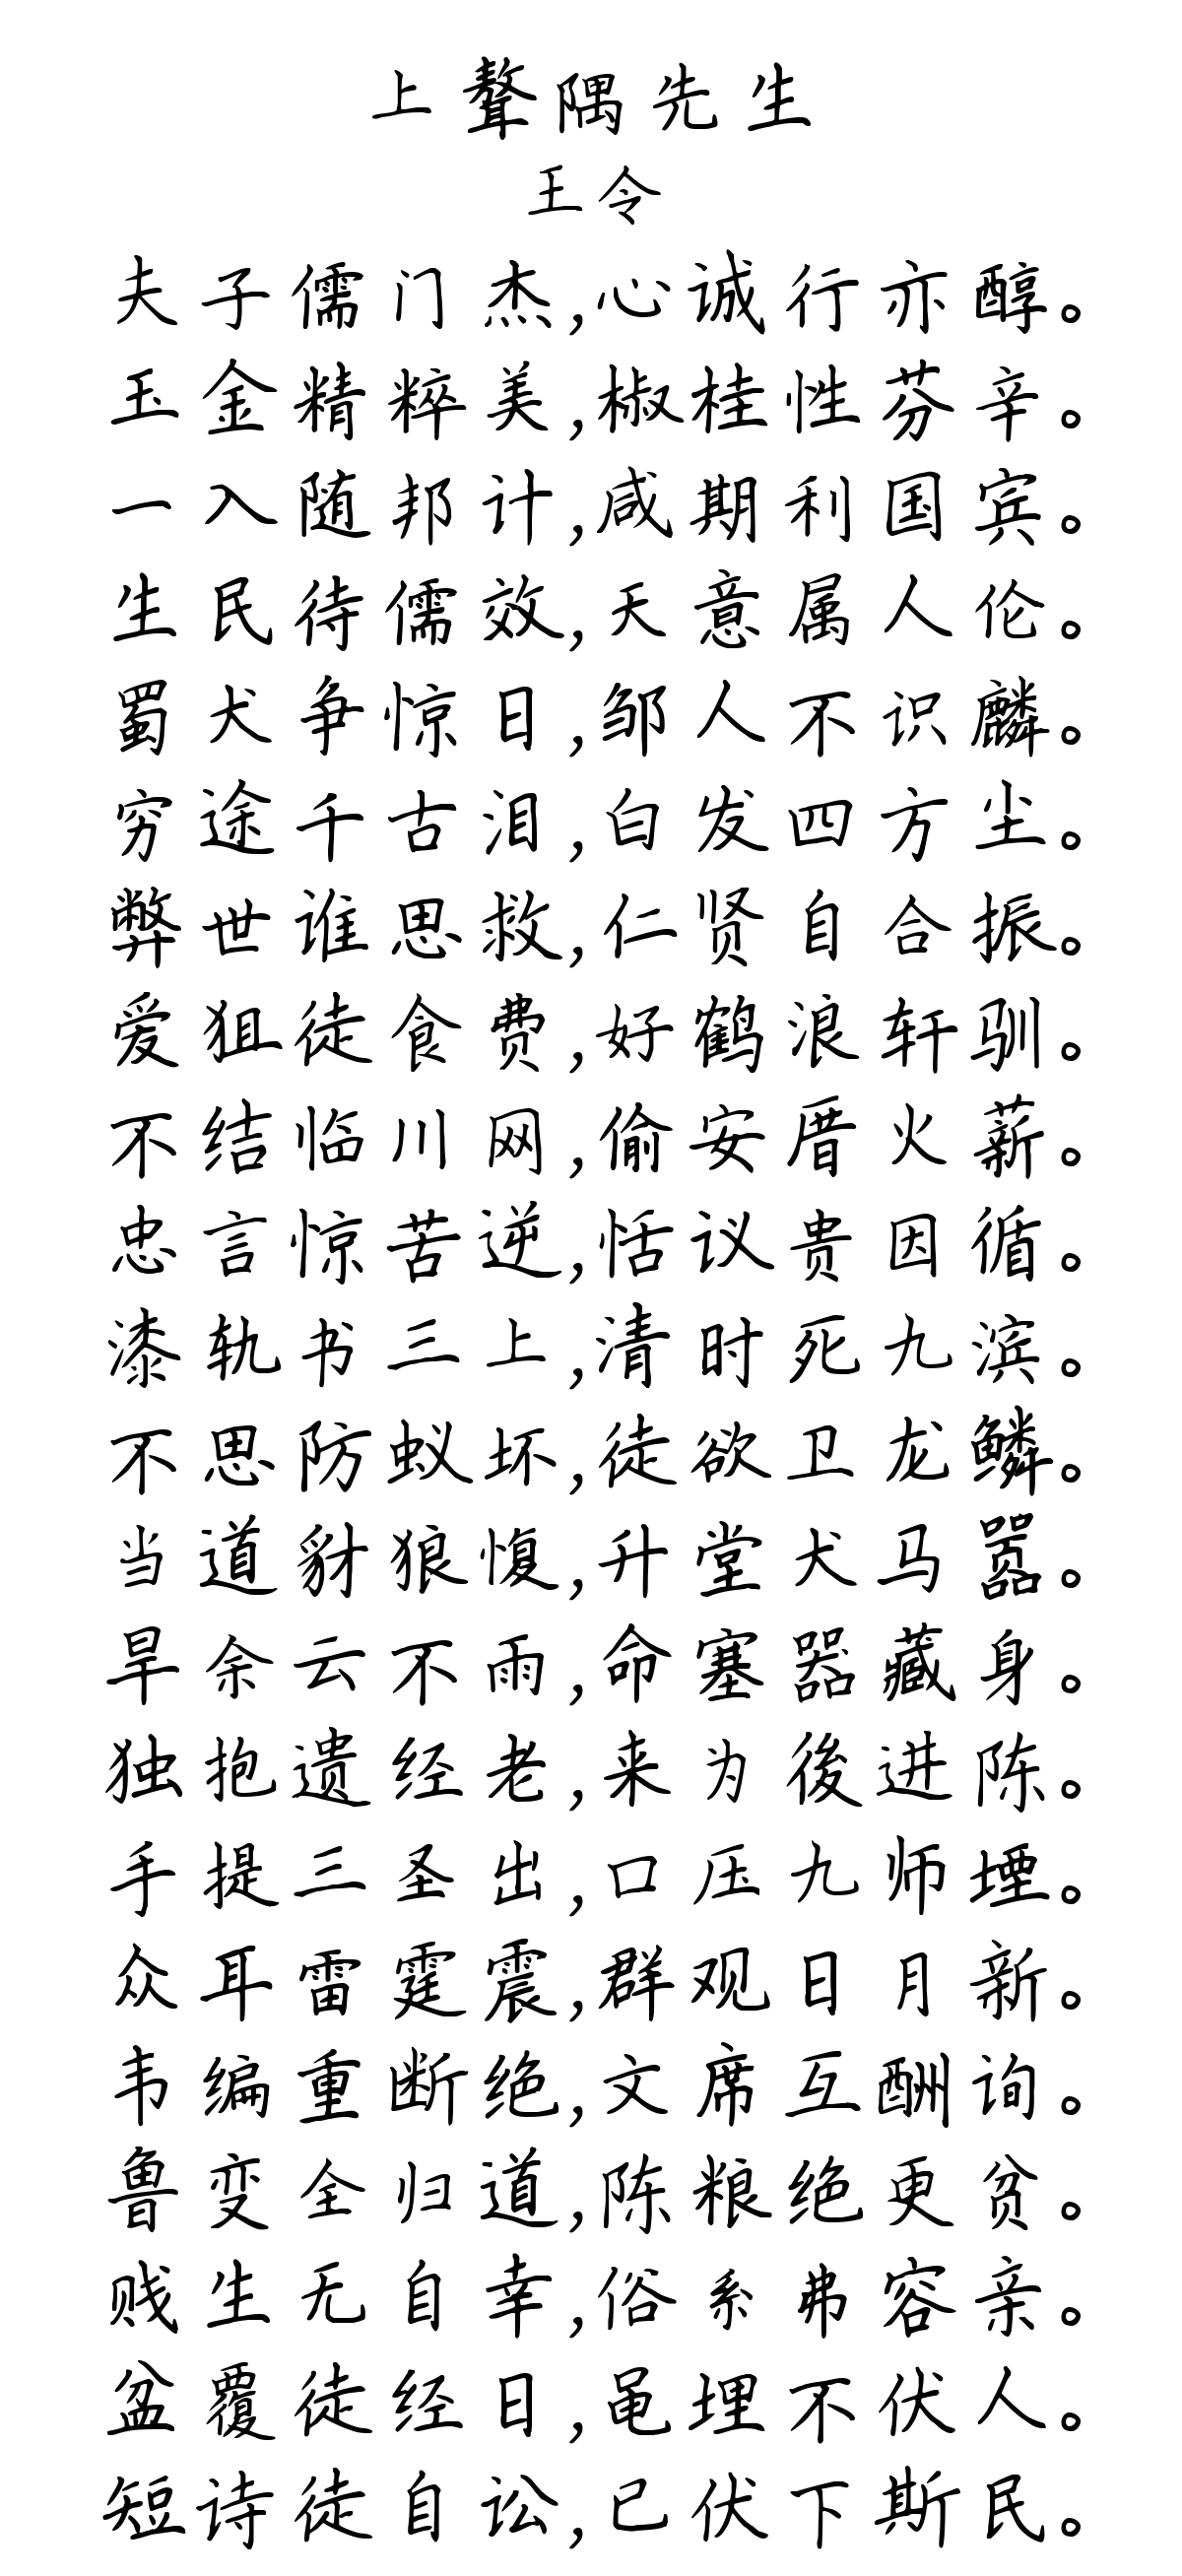 上聱隅先生
王令
夫子儒门杰,心诚行亦醇。
玉金精粹美,椒桂性芬辛。
一入随邦计,咸期利国宾。
生民待儒效,天意属人伦。
蜀犬争惊日,邹人不识麟。
穷途千古泪,白发四方尘。
弊世谁思救,仁贤自合振。
爱狙徒食费,好鹤浪轩驯。
不结临川网,偷安厝火薪。
忠言惊苦逆,恬议贵因循。
漆轨书三上,清时死九滨。
不思防蚁坏,徒欲卫龙鳞。
当道豺狼愎,升堂犬马嚚。
旱余云不雨,命塞器藏身。
独抱遗经老,来为後进陈。
手提三圣出,口压九师堙。
众耳雷霆震,群观日月新。
韦编重断绝,文席互酬询。
鲁变全归道,陈粮绝更贫。
贱生无自幸,俗系弗容亲。
盆覆徒经日,黾埋不伏人。
短诗徒自讼,已伏下斯民。